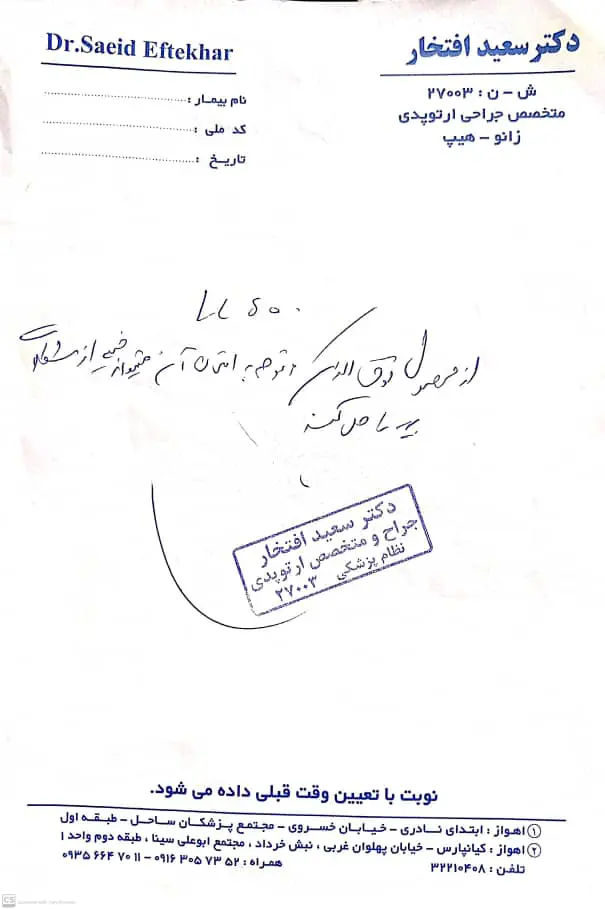 Dr.Saeid Eftekhar
دکتر سعید افتخار
ش - ن : ۲۷۰۰۳
متخصص جراحی ارتوپدی
زانو - هیپ
نام بیمار :
کد ملی :
تاریخ :
از محصول فوق الذکر و توجه به آن میتواند خیلی از مشکلات
را حل کند
دکتر سعید افتخار
جراح و متخصص ارتوپدی
نظام پزشکی ۲۷۰۰۳
نوبت با تعیین وقت قبلی داده می شود.
۱ اهواز : ابتدای نادری - خیابان خسروی - مجتمع پزشکان ساحل - طبقه اول
۲ اهواز : کیانپارس - خیابان پهلوان غربی ، نبش خرداد ، مجتمع ابوعلی سینا ، طبقه دوم واحد ۱
تلفن : ۳۲۲۱۰۴۰۸ همراه : ۵۲ ۷۳ ۳۰۵ ۰۹۱۶ - ۱۱ ۷۰ ۶۶۴ ۰۹۳۵
CS